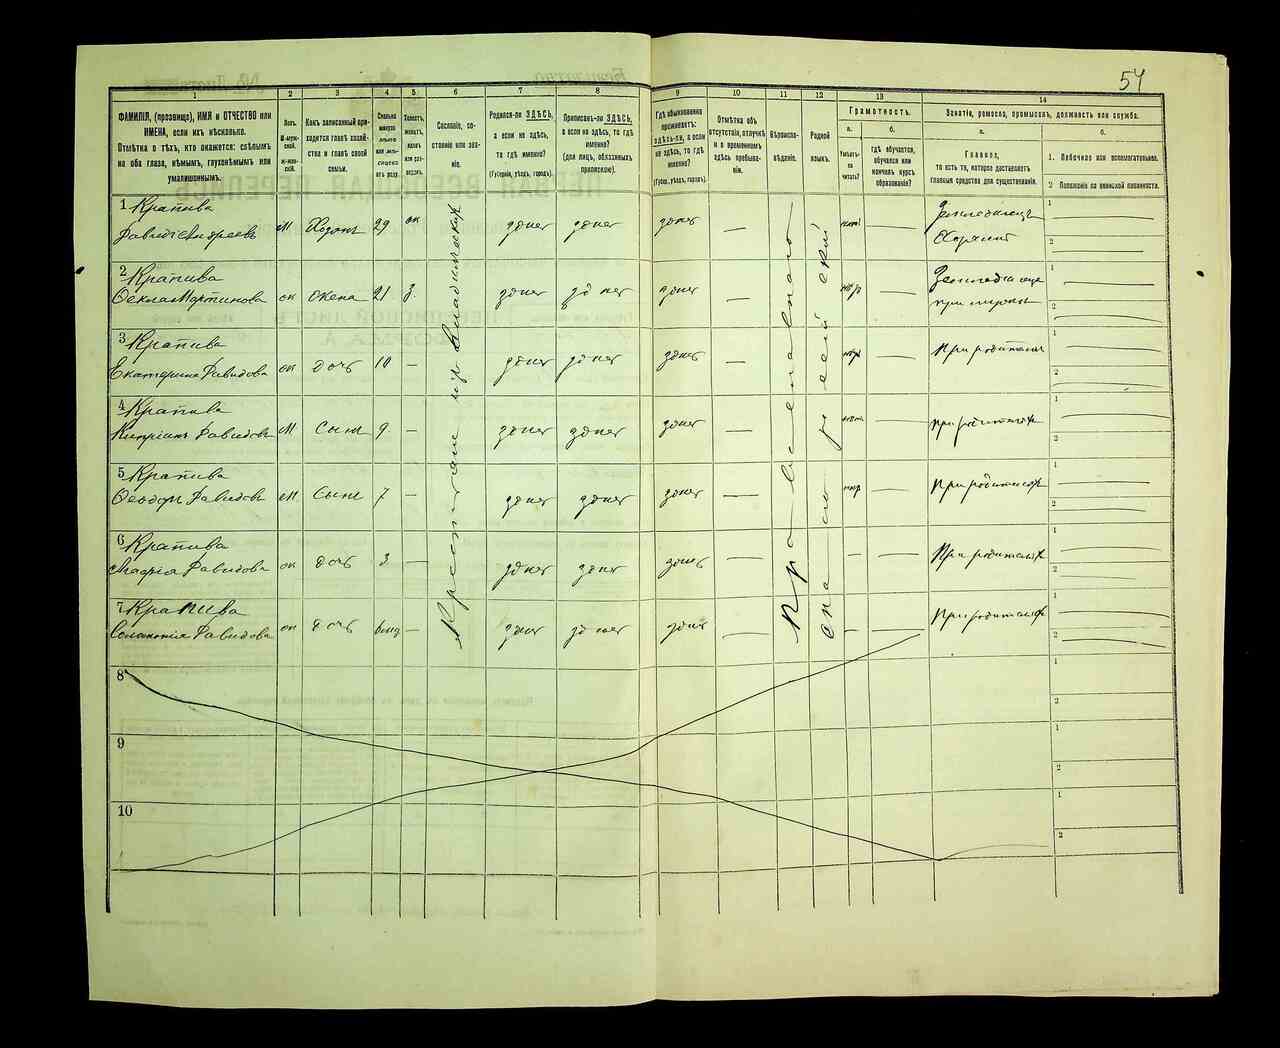 57
1 2 3 4 5. 6 7 8 9 10 11 12 13 14
ФАМИЛІЯ, (прозвище), ИМЯ и ОТЧЕСТВО или
ИМЕНА, если ихъ нѣсколько.
Отмѣтка о тѣхъ, кто окажется: слѣпымъ
на оба глаза, нѣмымъ, глухонѣмымъ или
умалишеннымъ.
Полъ.
М-муж-
ской.
Ж-жен-
скій.
Какъ записанный при-
ходится главѣ хозяй-
ства и главѣ своей
семьи.
Сколько
минуло
лѣтъ
или мѣ-
сяцевъ
отъ роду.
Холостъ,
женатъ,
вдовъ
или раз-
веденъ.
Сословіе, со-
стояніе или зва-
ніе.
Родился-ли ЗДѢСЬ,
а если не здѣсь,
то гдѣ именно?
(Губернія, уѣздъ, городъ).
Приписанъ-ли ЗДѢСЬ,
а если не здѣсь, то гдѣ
именно?
(для лицъ, обязанныхъ
припискою).
Гдѣ обыкновенно
проживаетъ:
здѣсь-ли, а если
не здѣсь, то гдѣ
именно?
(Губер., уѣздъ, городъ).
Отмѣтка объ
отсутствіи, отлучкѣ
и о временномъ
здѣсь пребыва-
ніи.
Вѣроиспо-
вѣданіе.
Родной
языкъ.
Грамотность.
а. б.
Умѣетъ-
ли
читать?
гдѣ обучается,
обучался или
кончилъ курсъ
образованія?
Занятіе, ремесло, промыселъ, должность или служба.
а. б.
Главное,
то есть то, которое доставляетъ
главныя средства для существованія.
1. Побочное или вспомогательное.
2 Положеніе по воинской повинности.
1 Крапива
Давидъ Андреевъ М Хозяинъ 29 здѣсь здѣсь здѣсь — —
1
2
2 Крапива
Ѳекла Мартинова ж жена 21 з. здѣсь здѣсь здѣсь — —
1
2
3 Крапива
Екатерина Давидова ж дочь 10 — здѣсь здѣсь здѣсь — — При родителяхъ
1
2
4 Крапива
Кипріанъ Давидовъ М Сынъ 9 — здѣсь здѣсь здѣсь — — при родителяхъ
1
2
5 Крапива
Ѳеодоръ Давидовъ М Сынъ 7 — здѣсь здѣсь здѣсь — — При родителяхъ
1
2
6 Крапива
Агафія Давидова ж дочь 3 — здѣсь здѣсь здѣсь — — — При родителяхъ
1
2
7 Крапива
Соломонія Давидова ж дочь — здѣсь здѣсь здѣсь — — — При родителяхъ
1
2
Православнаго
8
1
2
9
1
2
10
1
2